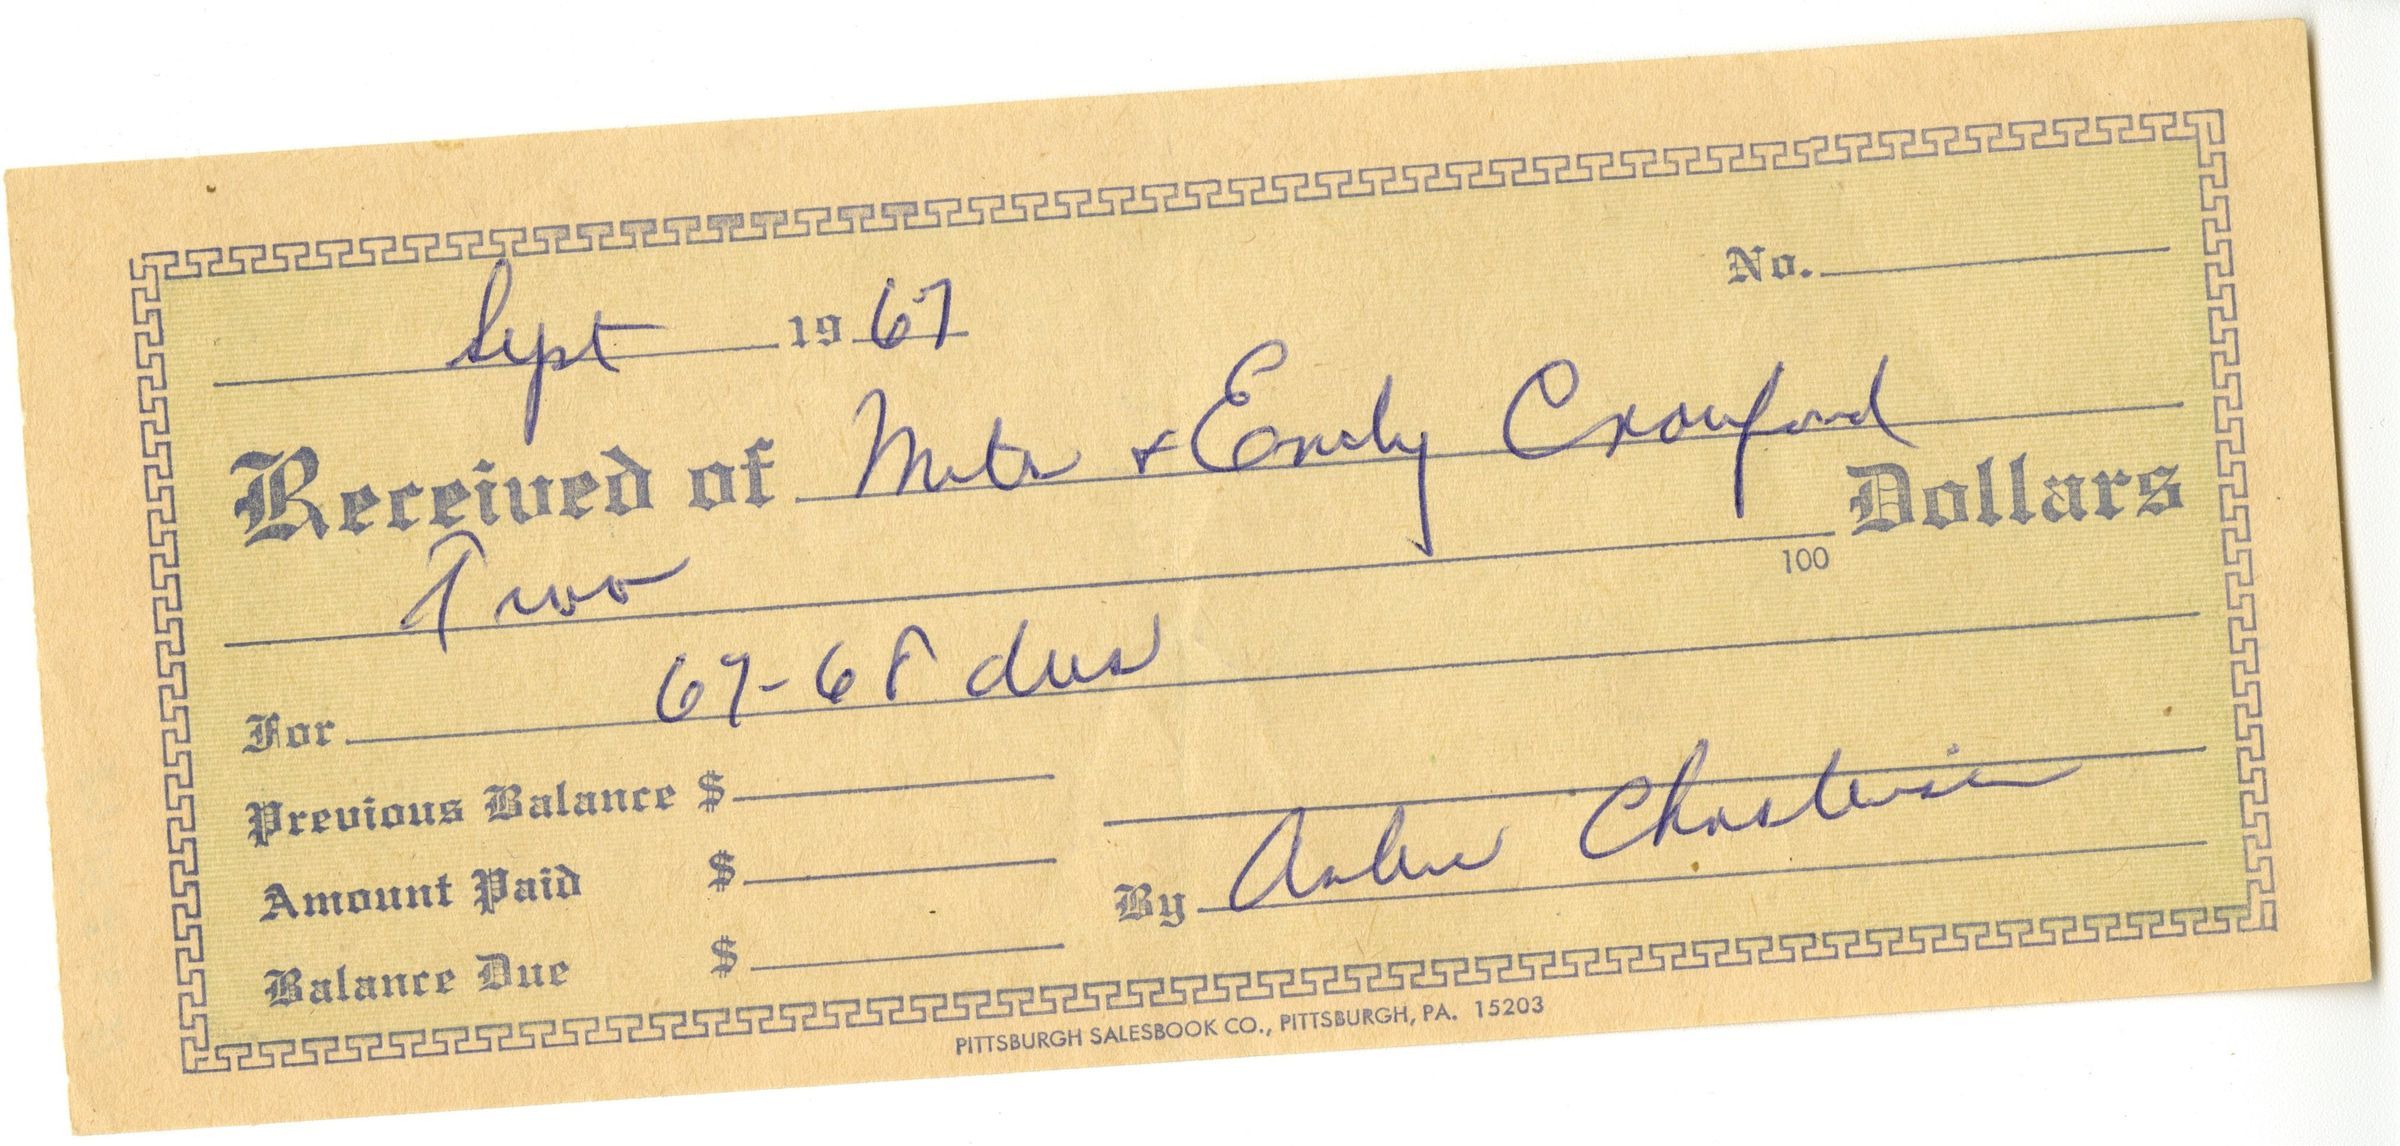 No.
Sept 19 67
Received of & Emily Crawford
Two 100 Dollars
For 67-68 dues
Previous Balance $
Amount Paid $
By
Balance Due $
PITTSBURGH SALESBOOK CO., PITTSBURGH, PA. 15203